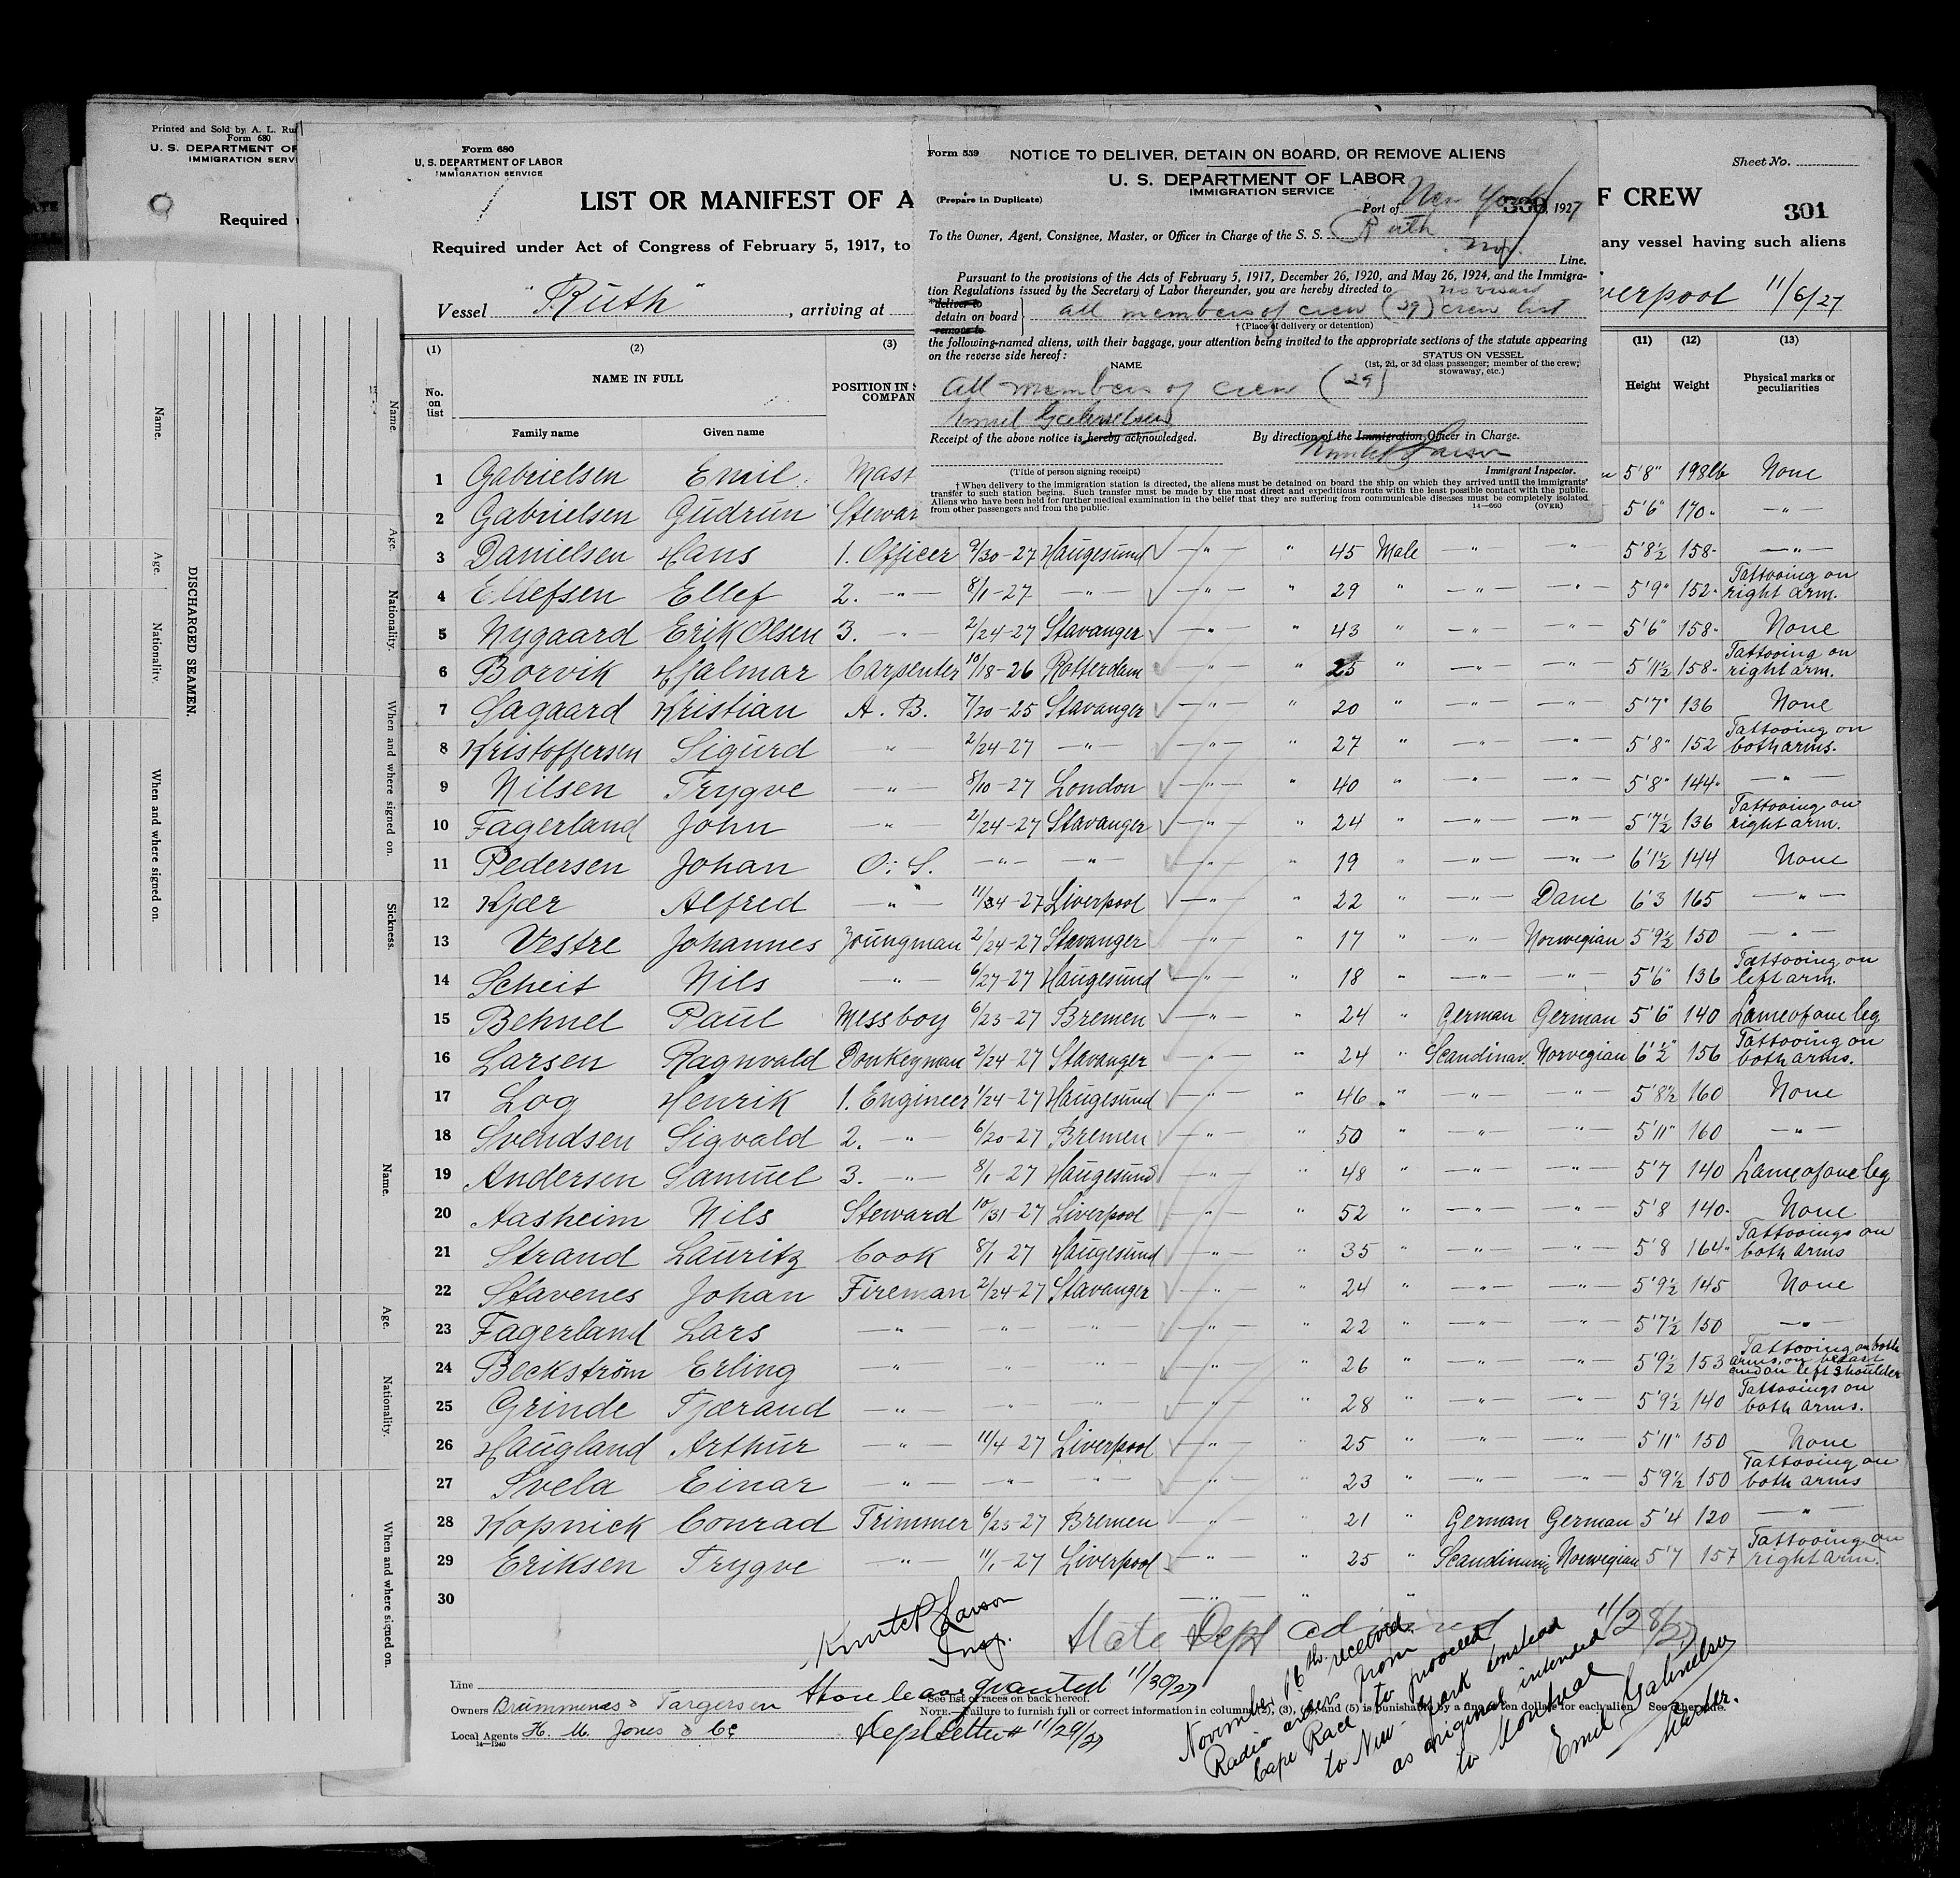 Printed and Sold by A. L. Ru
Form 680
U. S. DEPARTMENT OF
IMMIGRATION SERV
Required
Form 680
U. S. DEPARTMENT OF LABOR
IMMIGRATION SERVICE
LIST OR MANIFEST OF A
Required under Act of Congress of February 5, 1917, to
Vessel "Ruth", arriving at
Form 559
NOTICE TO DELIVER, DETAIN ON BOARD, OR REMOVE ALIENS
U. S. DEPARTMENT OF LABOR
IMMIGRATION SERVICE
(Prepare in Duplicate)
Port of New York 330, 1927
To the Owner, Agent, Consignee, Master, or Officer in Charge of the S. S. Ruth
Nor. Line.
Pursuant to the provisions of the Acts of February 5, 1917, December 26, 1920, and May 26, 1924, and the Immigra-
tion Regulations issued by the Secretary of Labor thereunder, you are hereby directed to
deliver to
detain on board
remove to
all members of crew (29) no visaed crew list
† (Place of delivery or detention)
the following-named aliens, with their baggage, your attention being invited to the appropriate sections of the statute appearing
on the reverse side hereof:
NAME
STATUS ON VESSEL
(1st, 2d, or 3d class passenger; member of the crew;
stowaway, etc.)
All members of crew (29)
Emil Gabrielsen
Receipt of the above notice is hereby acknowledged.
By direction of the Immigration Officer in Charge.
(Title of person signing receipt)
Immigrant Inspector.
† When delivery to the immigration station is directed, the aliens must be detained on board the ship on which they arrived until the immigrants'
transfer to such station begins. Such transfer must be made by the most direct and expeditious route with the least possible contact with the public.
Aliens who have been held for further medical examination in the belief that they are suffering from communicable diseases must be completely isolated
from other passengers and from the public.
14—660 (OVER)
Sheet No.
F CREW
301
any vessel having such aliens
verpool 11/6/27
(1) (2) (3) (11) (12) (13)
No. on list
NAME IN FULL
Family name Given name
POSITION IN S
COMPAN
Height Weight
Physical marks or
peculiarities
1 Gabrielsen Emil Mast 5'8" 198 lb None
2 Gabrielsen Gudrun Stewar 5'6" 170 " —"—
3 Danielsen Hans 1. Officer 9/30-27 Haugesund —"— " 45 Male " " 5'8½ 158 " —"—
4 Ellefsen Ellef 2. —"— 8/1-27 —"— —"— " 29 " —"— " 5'9" 152 " Tattooing on right arm.
5 Nygaard Erik Olsen 3. —"— 2/24-27 Stavanger —"— " 43 " —"— —"— 5'6" 158 " None
6 Borvik Hjalmar Carpenter 10/18-26 Rotterdam —"— " 25 " —"— —"— 5'11½ 158 " Tattooing on right arm.
7 Sagaard Kristian A. B. 7/20-25 Stavanger —"— " 20 " —"— —"— 5'7" 136 None
8 Kristoffersen Sigurd " 2/24-27 —"— —"— " 27 " —"— —"— 5'8" 152 Tattooing on both arms.
9 Nilsen Trygve —"— 8/10-27 London —"— " 40 " —"— —"— 5'8" 144 " —"—
10 Fagerland John —"— 2/24-27 Stavanger —"— " 24 " —"— —"— 5'7½ 136 Tattooing on right arm.
11 Pedersen Johan O. S. —"— —"— —"— " 19 " —"— —"— 6'1½ 144 None
12 Kjær Alfred —"— 11/4-27 Liverpool —"— " 22 " —"— Dane 6'3 165 —"—
13 Vestre Johannes Youngman 2/24-27 Stavanger —"— " 17 " —"— Norwegian 5'9½ 150 —"—
14 Scheit Nils —"— 6/27-27 Haugesund —"— " 18 " —"— —"— 5'6" 136 Tattooing on left arm.
15 Behnel Paul Messboy 6/23-27 Bremen —"— " 24 " German German 5'6" 140 Lame of one leg
16 Larsen Ragnvald Donkeyman 2/24-27 Stavanger —"— " 24 " Scandinav. Norvegian 6'½" 156 Tattooing on both arms.
17 Log Henrik 1. Engineer 1/24-27 Haugesund —"— " 46 " —"— —"— 5'8½ 160 None
18 Svendsen Sigvald 2. —"— 6/20-27 Bremen —"— " 50 " —"— —"— 5'11" 160 —"—
19 Andersen Samuel 3. —"— 8/1-27 Haugesund —"— " 48 " —"— —"— 5'7 140 Lame of one leg
20 Aasheim Nils Steward 10/31-27 Liverpool —"— " 52 " —"— —"— 5'8 140 " None
21 Strand Lauritz Cook 8/1 27 Haugesund —"— " 35 " —"— —"— 5'8 164 " Tattooings on both arms
22 Stavenes Johan Fireman 2/24-27 Stavanger —"— " 24 " —"— —"— 5'9½ 145 None
23 Fagerland Lars —"— " —"— —"— " 22 " —"— —"— 5'7½ 150 —"—
24 Beckstrøm Erling —"— " " —"— " 26 " —"— —"— 5'9½ 153 Tattooing on both arms, on breast and on left shoulder
25 Grinde Tjærand —"— —"— —"— —"— " 28 " —"— —"— 5'9½ 140 Tattooings on both arms.
26 Haugland Arthur —"— 11/4 27 Liverpool —"— " 25 " —"— —"— 5'11" 150 None
27 Svela Einar —"— —"— —"— —"— " 23 " —"— —"— 5'9½ 150 Tattooing on both arms
28 Kopnick Conrad Trimmer 6/25-27 Bremen —"— " 21 " German German 5'4 120 —"—
29 Eriksen Trygve —"— 11/1-27 Liverpool —"— " 25 " Scandinavi Norwegian 5'7 157 Tattooing on right arm.
30 —"— " "
Knute P Larson
Insp.
State Dept advised 11/28/27
Shore leave granted 11/30/27
Dept letter # 11/29/27
Line
Owners Brummenæs & Torgersen
Local Agents H. M. Jones & Co
14—1240
See list of races on back hereof.
NOTE.—Failure to furnish full or correct information in columns (2), (3), (4) and (5) is punishable by a fine of ten dollars for each alien. See other side.
November 16th. received
Radio orders from
Cape Race to proceed
to New-York instead
as original intended
to Montreal
Emil Gabrielsen
Master.
Name.
Age.
Nationality.
When and where signed on.
DISCHARGED SEAMEN.
Name
Age.
Nationality.
When and where signed on.
Sickness.
Name.
Age.
Nationality.
When and where signed on.